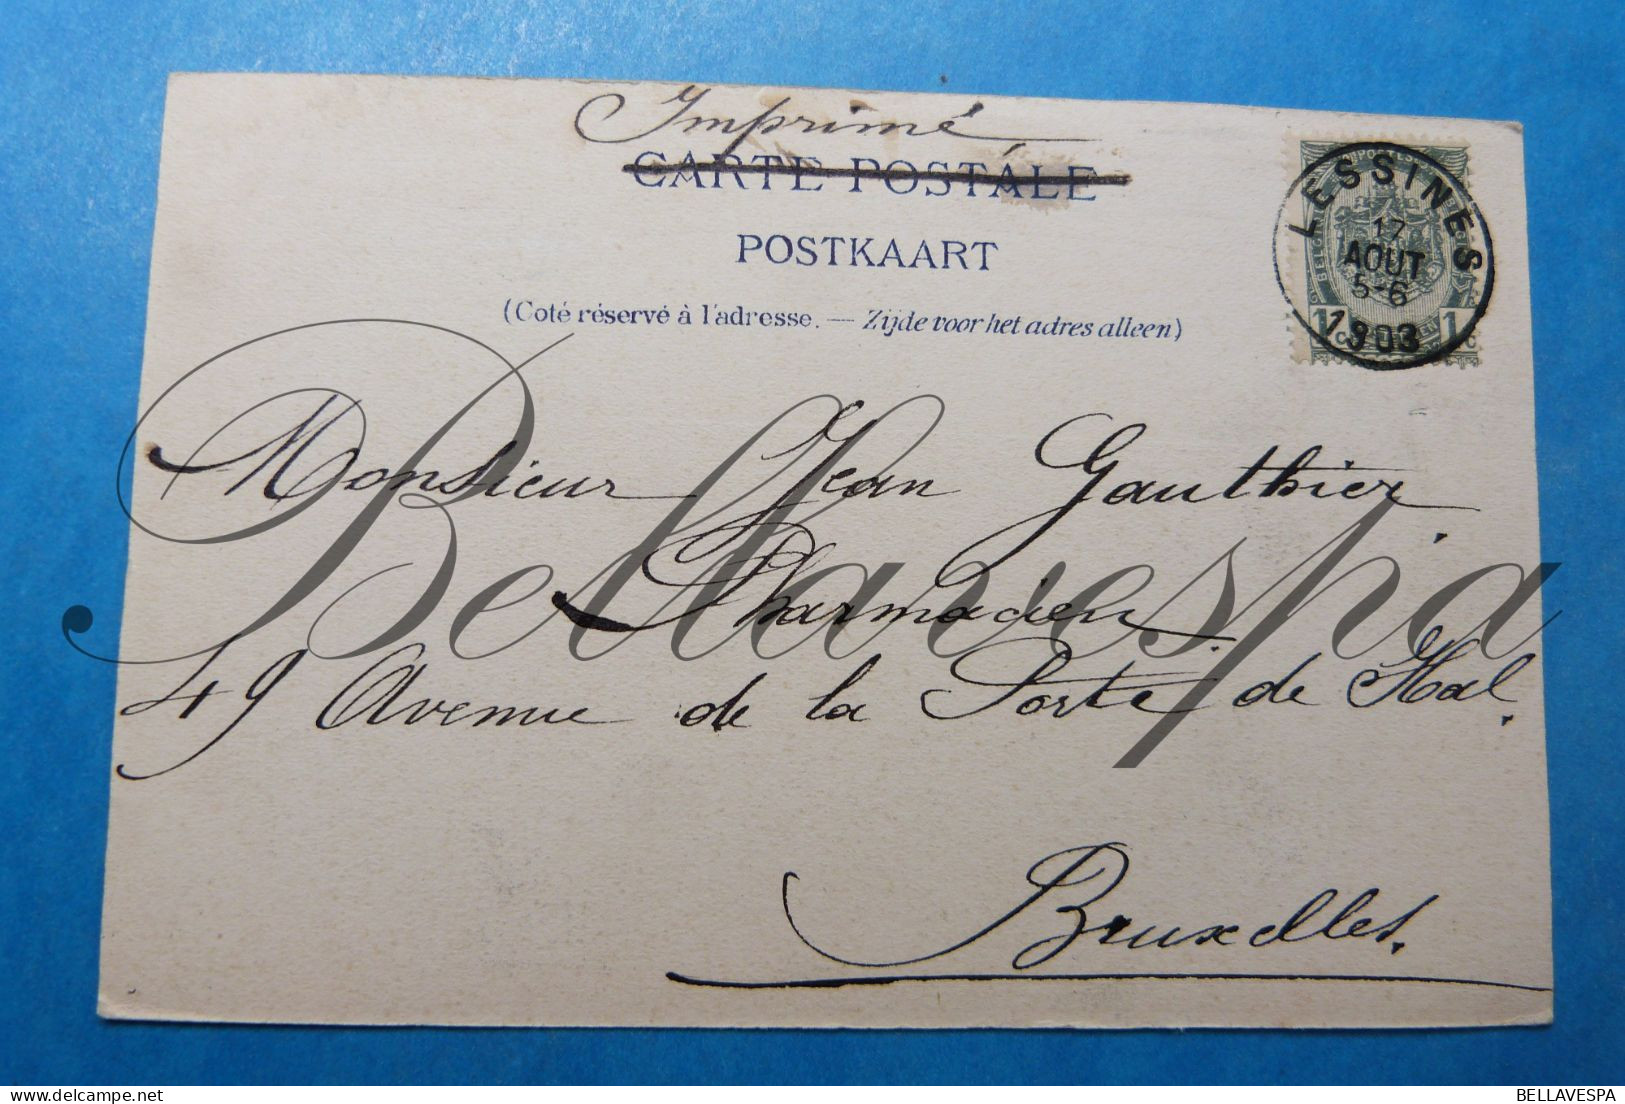 Imprimé
CARTE POSTALE
POSTKAART
(Coté réservé à l'adresse. — Zijde voor het adres alleen)
LESSINES
17
AOUT
5-6
1903
1 1
Monsieur Jean Gauthier.
Pharmacien.
49 Avenue de la Porte de Hal.
Bruxelles.
Bellavespa
BELLAVESPA